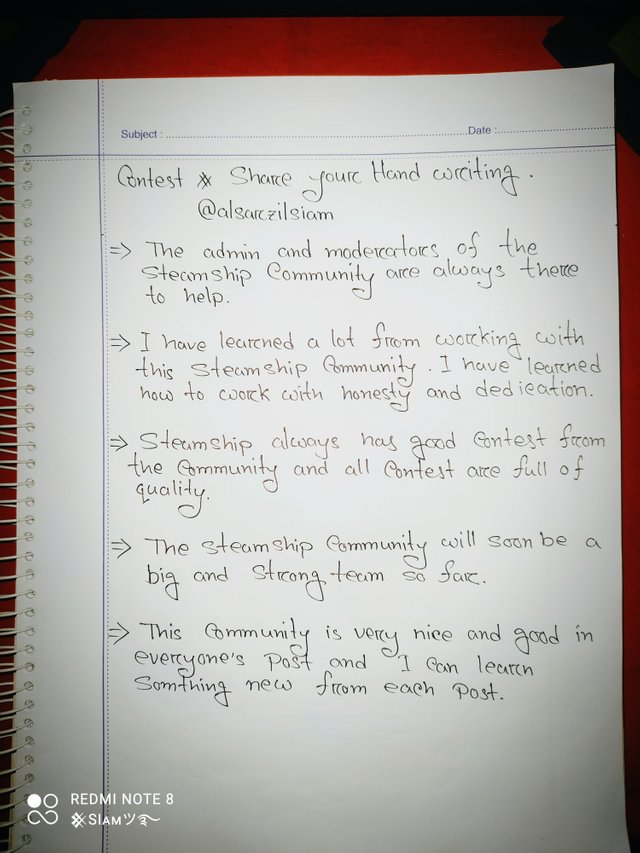 Subject : ........ Date : ........
Contest ※ Share your Hand writing .
@alsarzilsiam
⇒ The admin and moderators of the
Steamship Community are always there
to help.
⇒ I have learned a lot from working with
this Steamship Community . I have learned
how to work with honesty and dedication.
⇒ Steamship always has good Contest from
the Community and all Contest are full of
quality.
⇒ The steamship Community will soon be a
big and Strong team so far.
⇒ This Community is very nice and good in
everyone's Post and I Can learn
Somthing new from each Post.
REDMI NOTE 8
※SIAMツ